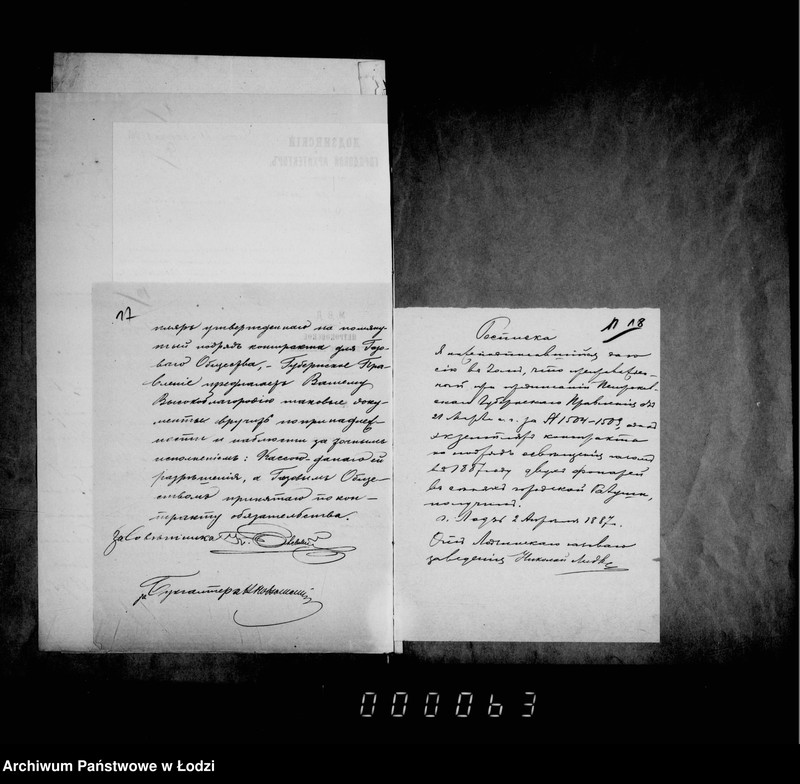 17
пляръ утвержденнаго на помяну-
тый подрядъ контракта для Газо-
ваго Общества, - Губернское Пра-
вленіе предлагаетъ Вашему
Высокоблагородію таковые доку-
менты вручить по принадлеж-
ности и наблюсти за точнымъ
исполненіемъ: Кассою - даннаго ей
разрѣшенія, а Газовымъ Обще-
ствомъ принятаго по кон-
тракту обязательства.
за Совѣтника
за Бухгалтера
11 18
Росписка
Я нижеподписавшійся даю
сію въ томъ, что
при предписаніи Петроков-
скаго Губернскаго Правленія отъ
21 Марта с. г. за № 1504-1509, одинъ
экземпляръ контракта
на подрядъ освѣщенія газомъ
въ 1887 году двухъ фонарей
въ сѣняхъ городской Ратуши,
получилъ.
г. Лодзь 2 Апрѣля 1887 г.
Отъ Лодзинскаго газоваго
заведенія Николай
000063
Archiwum Państwowe w Łodzi